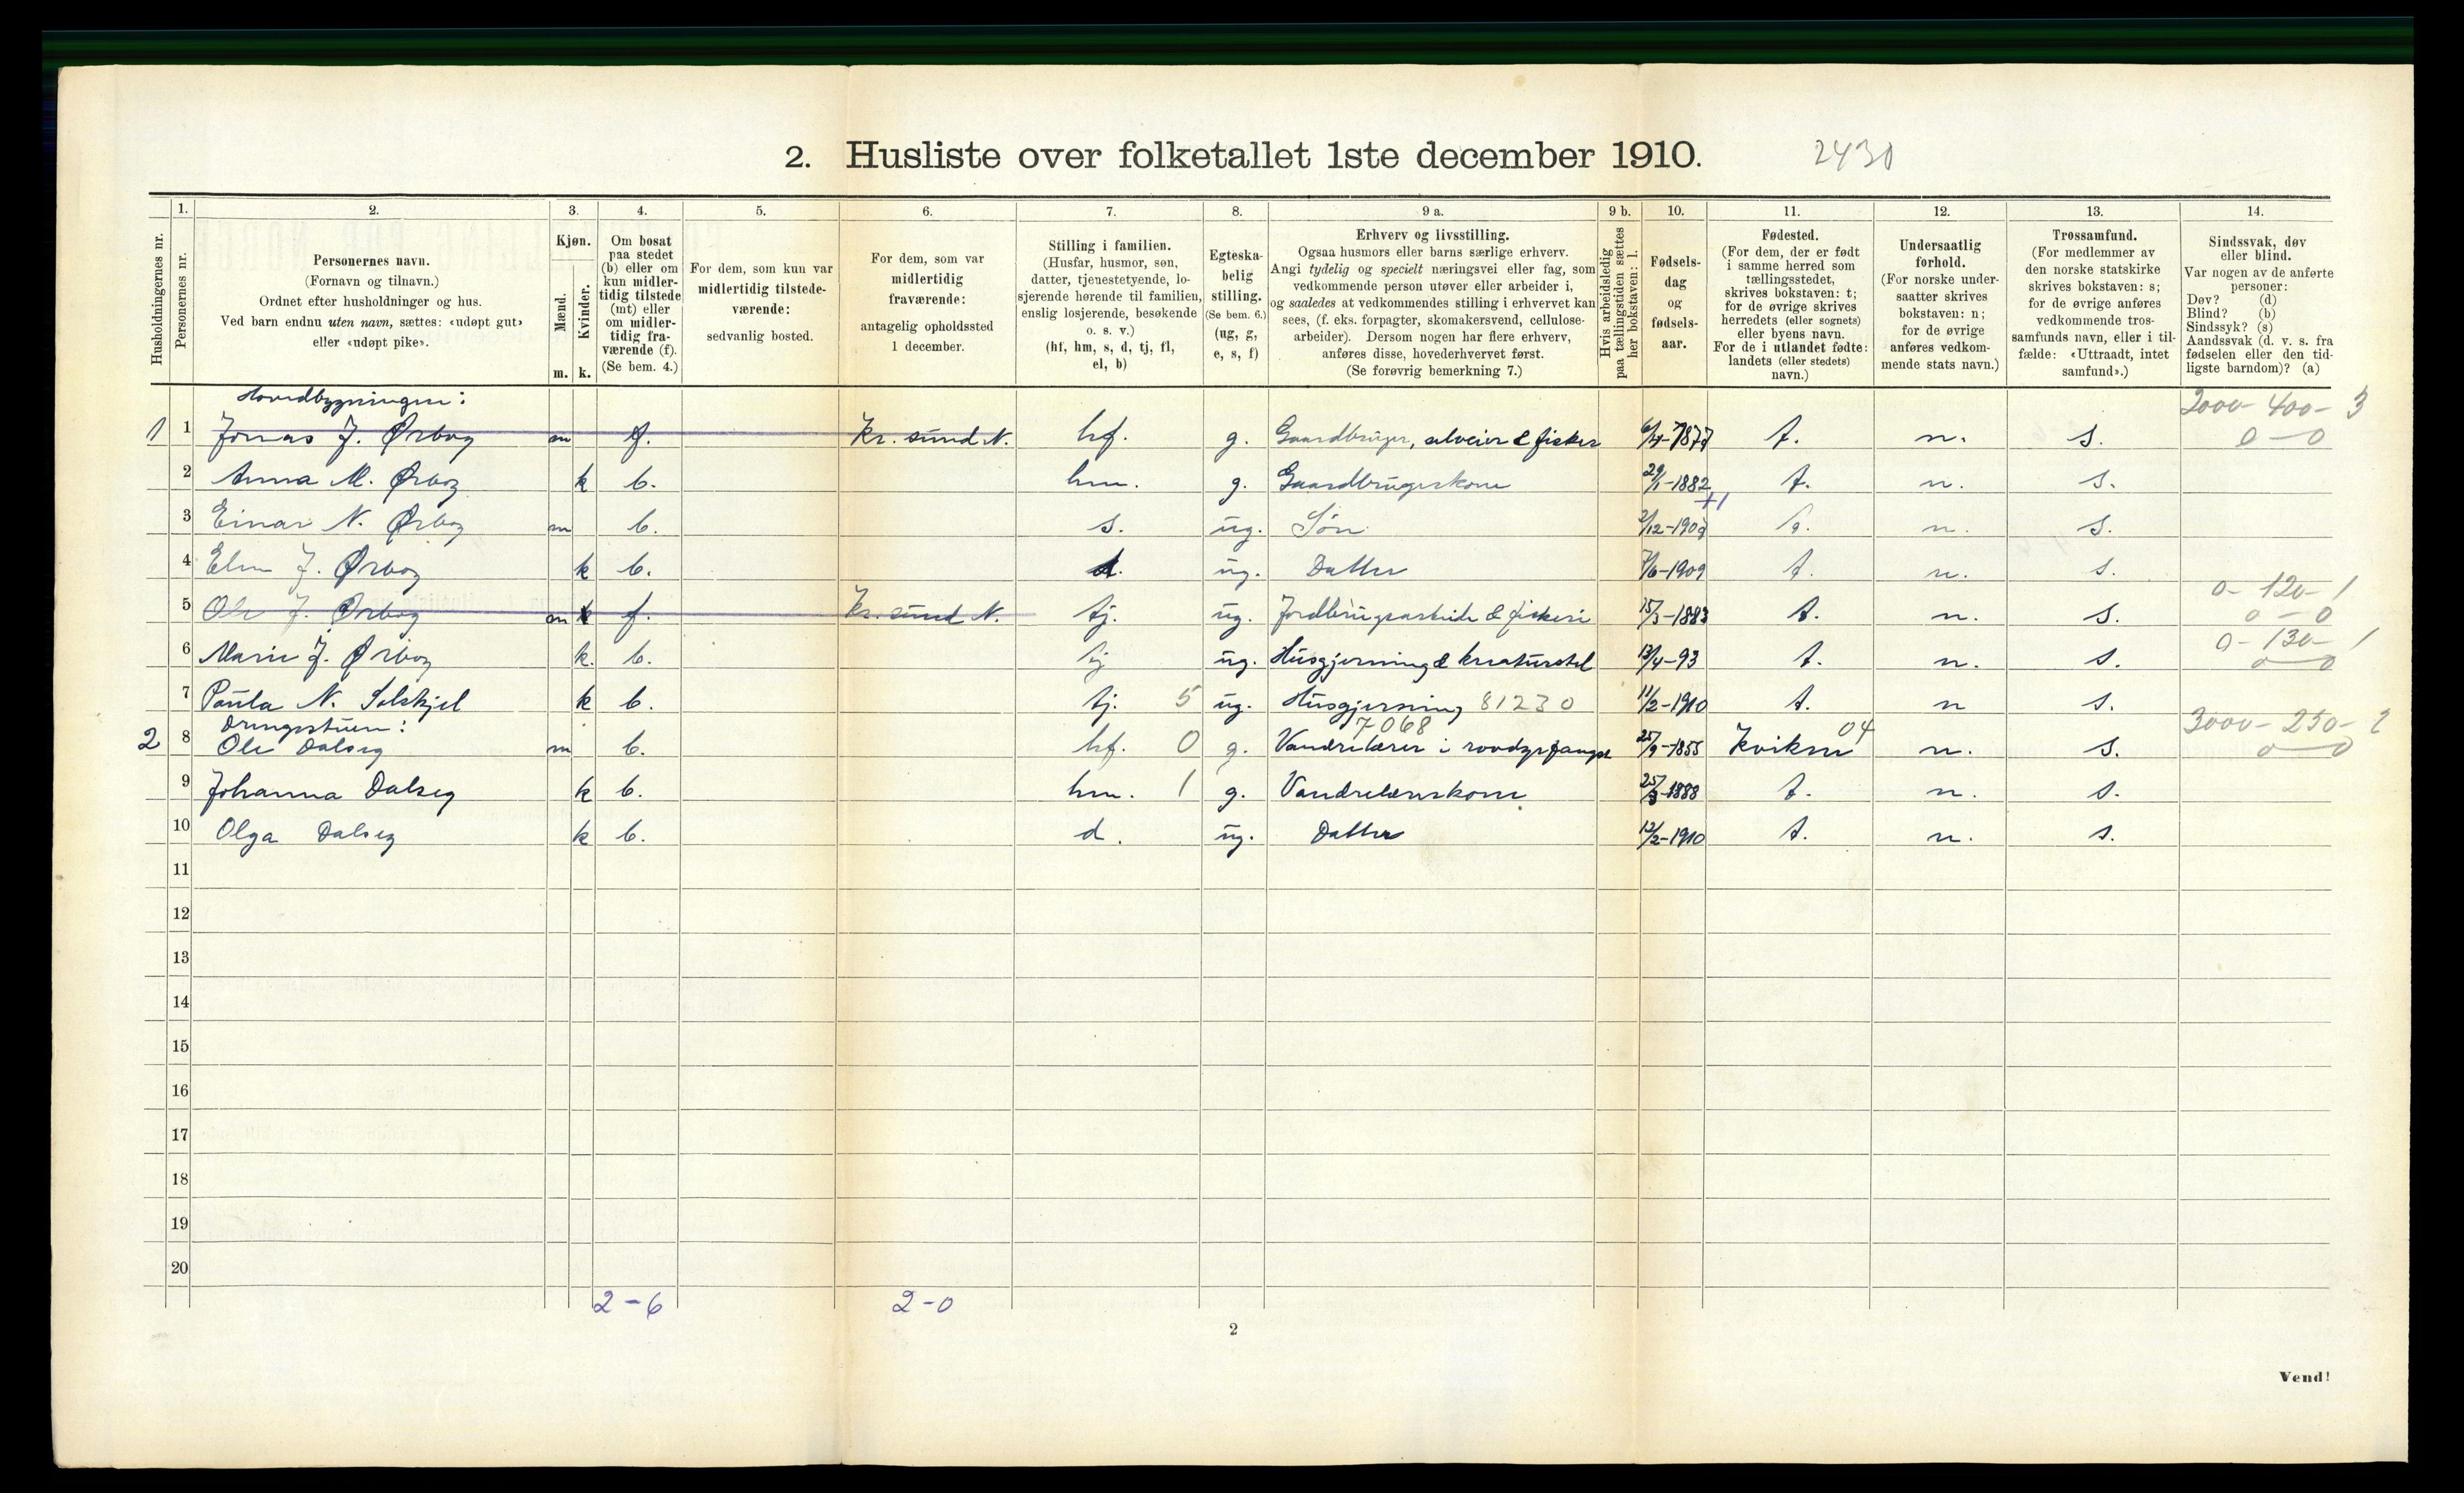 2. Husliste over folketallet 1ste december 1910. 2430
1. 2. 3. 4. 5. 6. 7. 8. 9 a. 9 b. 10. 11. 12. 13. 14.
Husholdningernes nr.
Personernes nr.
Personernes navn.
(Fornavn og tilnavn.)
Ordnet efter husholdninger og hus.
Ved barn endnu uten navn, sættes: «udøpt gut»
eller «udøpt pike».
Kjøn.
Mænd.
Kvinder.
m. k.
Om bosat
paa stedet
(b) eller om
kun midler-
tidig tilstede
(mt) eller
om midler-
tidig fra-
værende (f).
(Se bem. 4.)
For dem, som kun var
midlertidig tilstede-
værende:
sedvanlig bosted.
For dem, som var
midlertidig
fraværende:
antagelig opholdssted
1 december.
Stilling i familien.
(Husfar, husmor, søn,
datter, tjenestetyende, lo-
sjerende hørende til familien,
enslig losjerende, besøkende
o. s. v.)
(hf, hm, s, d, tj, fl,
el, b)
Egteska-
belig
stilling.
(Se bem. 6.)
(ug, g,
e, s, f)
Erhverv og livsstilling.
Ogsaa husmors eller barns særlige erhverv.
Angi tydelig og specielt næringsvei eller fag, som
vedkommende person utøver eller arbeider i,
og saaledes at vedkommendes stilling i erhvervet kan
sees, (f. eks. forpagter, skomakersvend, cellulose-
arbeider). Dersom nogen har flere erhverv,
anføres disse, hovederhvervet først.
(Se forøvrig bemerkning 7.)
Hvis arbeidsledig
paa tællingstiden sættes
her bokstaven: l.
Fødsels-
dag
og
fødsels-
aar.
Fødested.
(For dem, der er født
i samme herred som
tællingsstedet,
skrives bokstaven: t;
for de øvrige skrives
herredets (eller sognets)
eller byens navn.
For de i utlandet fødte:
landets (eller stedets)
navn.)
Undersaatlig
forhold.
(For norske under-
saatter skrives
bokstaven: n;
for de øvrige
anføres vedkom-
mende stats navn.)
Trossamfund.
(For medlemmer av
den norske statskirke
skrives bokstaven: s;
for de øvrige anføres
vedkommende tros-
samfunds navn, eller i til-
fælde: «Uttraadt, intet
samfund».)
Sindssvak, døv
eller blind.
Var nogen av de anførte
personer:
Døv? (d)
Blind? (b)
Sindssyk? (s)
Aandssvak (d. v. s. fra
fødselen eller den tid-
ligste barndom)? (a)
Hovedbygningen: 2000- 400- 3
1 1 Jonas J. Ørbog m f. Kr. sund N. hf. g. Gaardbruger, selveier & fisker 1877 t. n. s. 0-0
2 Anna M. Ørbog k b. hm. g. Gaardbrugerskone 29/1-1882 t. n. s.
+1
3 Einar N. Ørbog m b. s. ug. Søn t. n. s.
4 J. Ørbog k b. d. ug. Datter 7/6-1909 t. n. s.
0- 120- 1
5 Ole J. Ørbog m f. Kr. sund N. tj. ug. Jordbrugsarbeide & fiskeri 15/3-1883 t. n. s. 0-0
0- 130- 1
6 Marie J. Ørbog k. b. tj ug. Husgjerning & kreaturstel 13/4-93 t. n. s. 0-0
7 Paula N. Solskjel k b. tj. 5 ug. Husgjerning 81230 11/2-1910 t. n s.
Drengestuen: 7068 04 3000- 250- 2
2 8 Ole Dalseg m b. hf. 0 g. Vandrelærer i 25/9-1855 Kvikne n. s. 0-0
9 Johanna Dalseg k b. hm. 1 g. Vandrelærerskone 25/3-1888 t. n. s.
10 Olga Dalseg k b. d. ug. Datter 12/2-1910 t. n. s.
11
12
13
14
15
16
17
18
19
20
2-6 2-0
2
Vend!